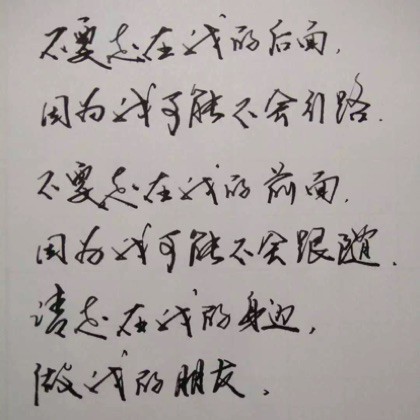 不要走在我的后面,
因为我可能不会引路.
不要走在我的前面,
因为我可能不会跟随.
请走在我的身边,
做我的朋友.